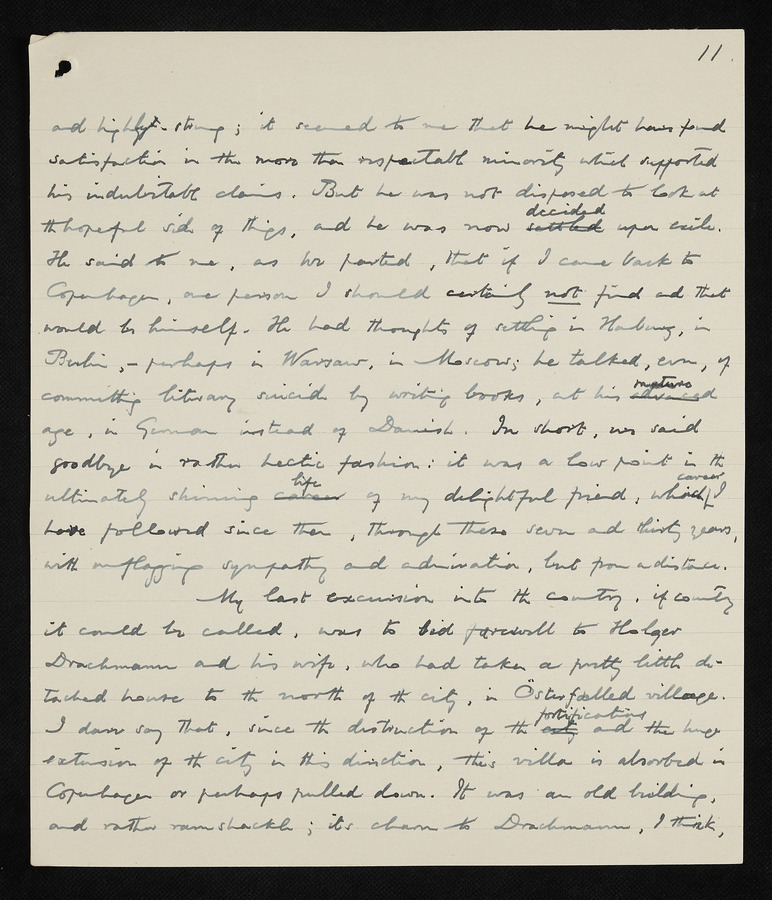 11.
and highly-strung; it seemed to me that he might have found
satisfaction in the more than respectable minority which supported
his indubitable claims. But he was not disposed to look at
the hopeful side of things, and he was now settled decided upon exile.
He said to me, as we parted, that if I came back to
Copenhagen, one person I should certainly not find and that
would be himself. He had thoughts of settling in Hamburg, in
Berlin, – perhaps in Warsaw, in Moscow; he talked, even, of
committing literary suicide by writing books, at his advanced mature
age, in German instead of Danish. In short, we said
goodbye in rather hectic fashion: it was a low point in the
ultimately shining career life of my delightful friend, whose career I
have followed since then, through these seven and thirty years,
with unflagging sympathy and admiration, but from a distance.
My last excursion into the country, if country
it could be called, was to bid farewell to Holger
Drachmann and his wife, who had taken a pretty little de-
tached house to the north of the city, in Österfælled village.
I dare say that, since the destruction of the city fortifications and the huge
extension of the city in this direction, this villa is absorbed in
Copenhagen or perhaps pulled down. It was an old building,
and rather ramshackle; its charm to Drachmann, I think,